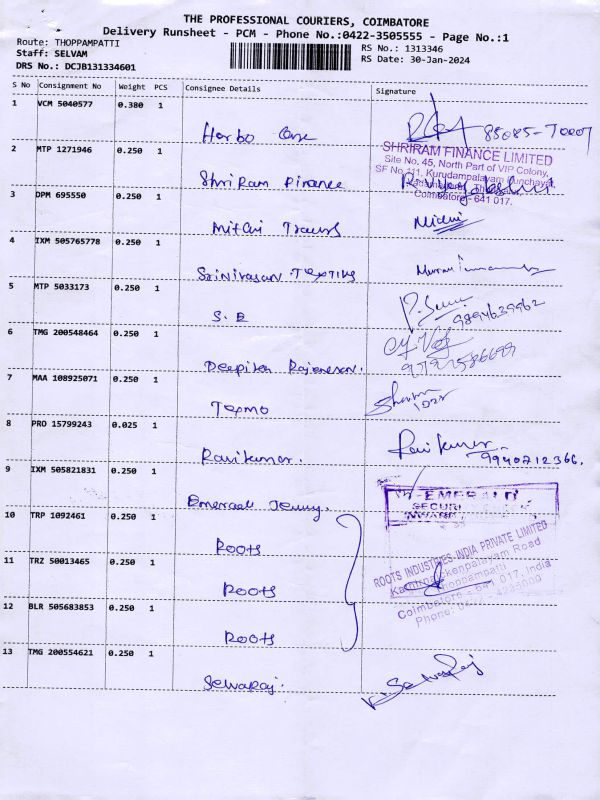 THE PROFESSIONAL COURIERS, COIMBATORE
Delivery Runsheet - PCM - Phone No.:0422-3505555 - Page No.:1
Route: THOPPAMPATTI
Staff: SELVAM
DRS No.: DCJB131334601
RS No.: 1313346
RS Date: 30-Jan-2024
S No Consignment No Weight PCS Consignee Details Signature
1 VCM 5040577 0.380 1
Herbo Care 85085-70007
2 MTP 1271946 0.250 1
Shri Ram Finance
SHRIRAM FINANCE LIMITED
Site No. 45, North Part of VIP Colony,
SF No.111, Kurudampalayam Panchayat,
Coimbatore - 641 017.
3 DPM 695550 0.250 1
Mithi Travels
4 IXM 505765778 0.250 1
Srinivasan Texting
5 MTP 5033173 0.250 1
S.E 9894639962
6 TMG 200548464 0.250 1
Deepika Rajeneran.
7 MAA 108925071 0.250 1
Texmo
8 PRO 15799243 0.025 1
Ravikumar. Ravi Kumar 9940712366.
9 IXM 505821831 0.250 1
Emerald Jenny.
EMERALD
SECURI
10 TRP 1092461 0.250 1
Roots
11 TRZ 50013465 0.250 1
Roots
ROOTS INDUSTRIES INDIA PRIVATE LIMITED
Thoppampatti
Coimbatore - 641 017, India
12 BLR 505683853 0.250 1
Roots
13 TMG 200554621 0.250 1
Selvaraj. Selvaraj